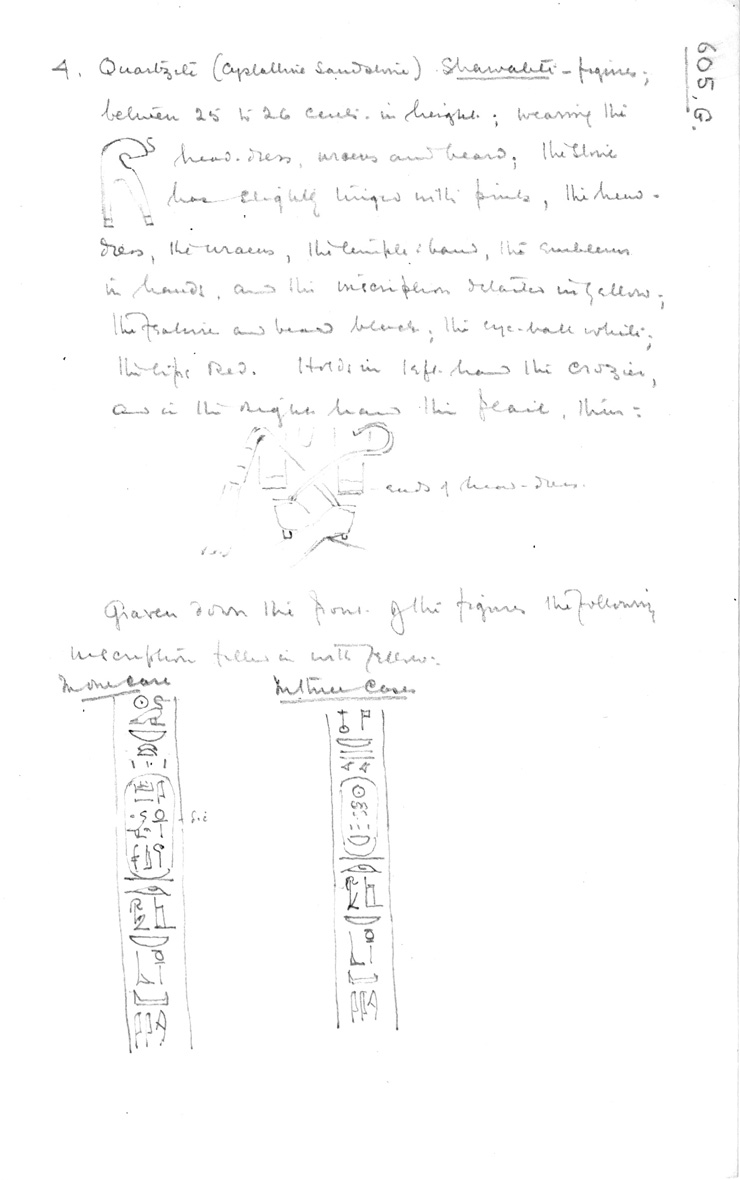 605, G.
4. Quartzite (Crystalline Sandstone) Shawabti-figures;
between 25 to 26 cents. in height; wearing the
head-dress, uraeus and beard; the stone
has slightly tinged with pink, the head-
dress, the uraeus, the temple-band, the emblems
in hands, and the inscription detailed in yellow;
the features and beard black; the eye-ball white;
the lips red. Holds in left hand the crozier,
and in the right hand the flail, thus:
ends of head-dress.
Graven down the front of the figures the following
inscription filled in with yellow:
In one case
In three cases